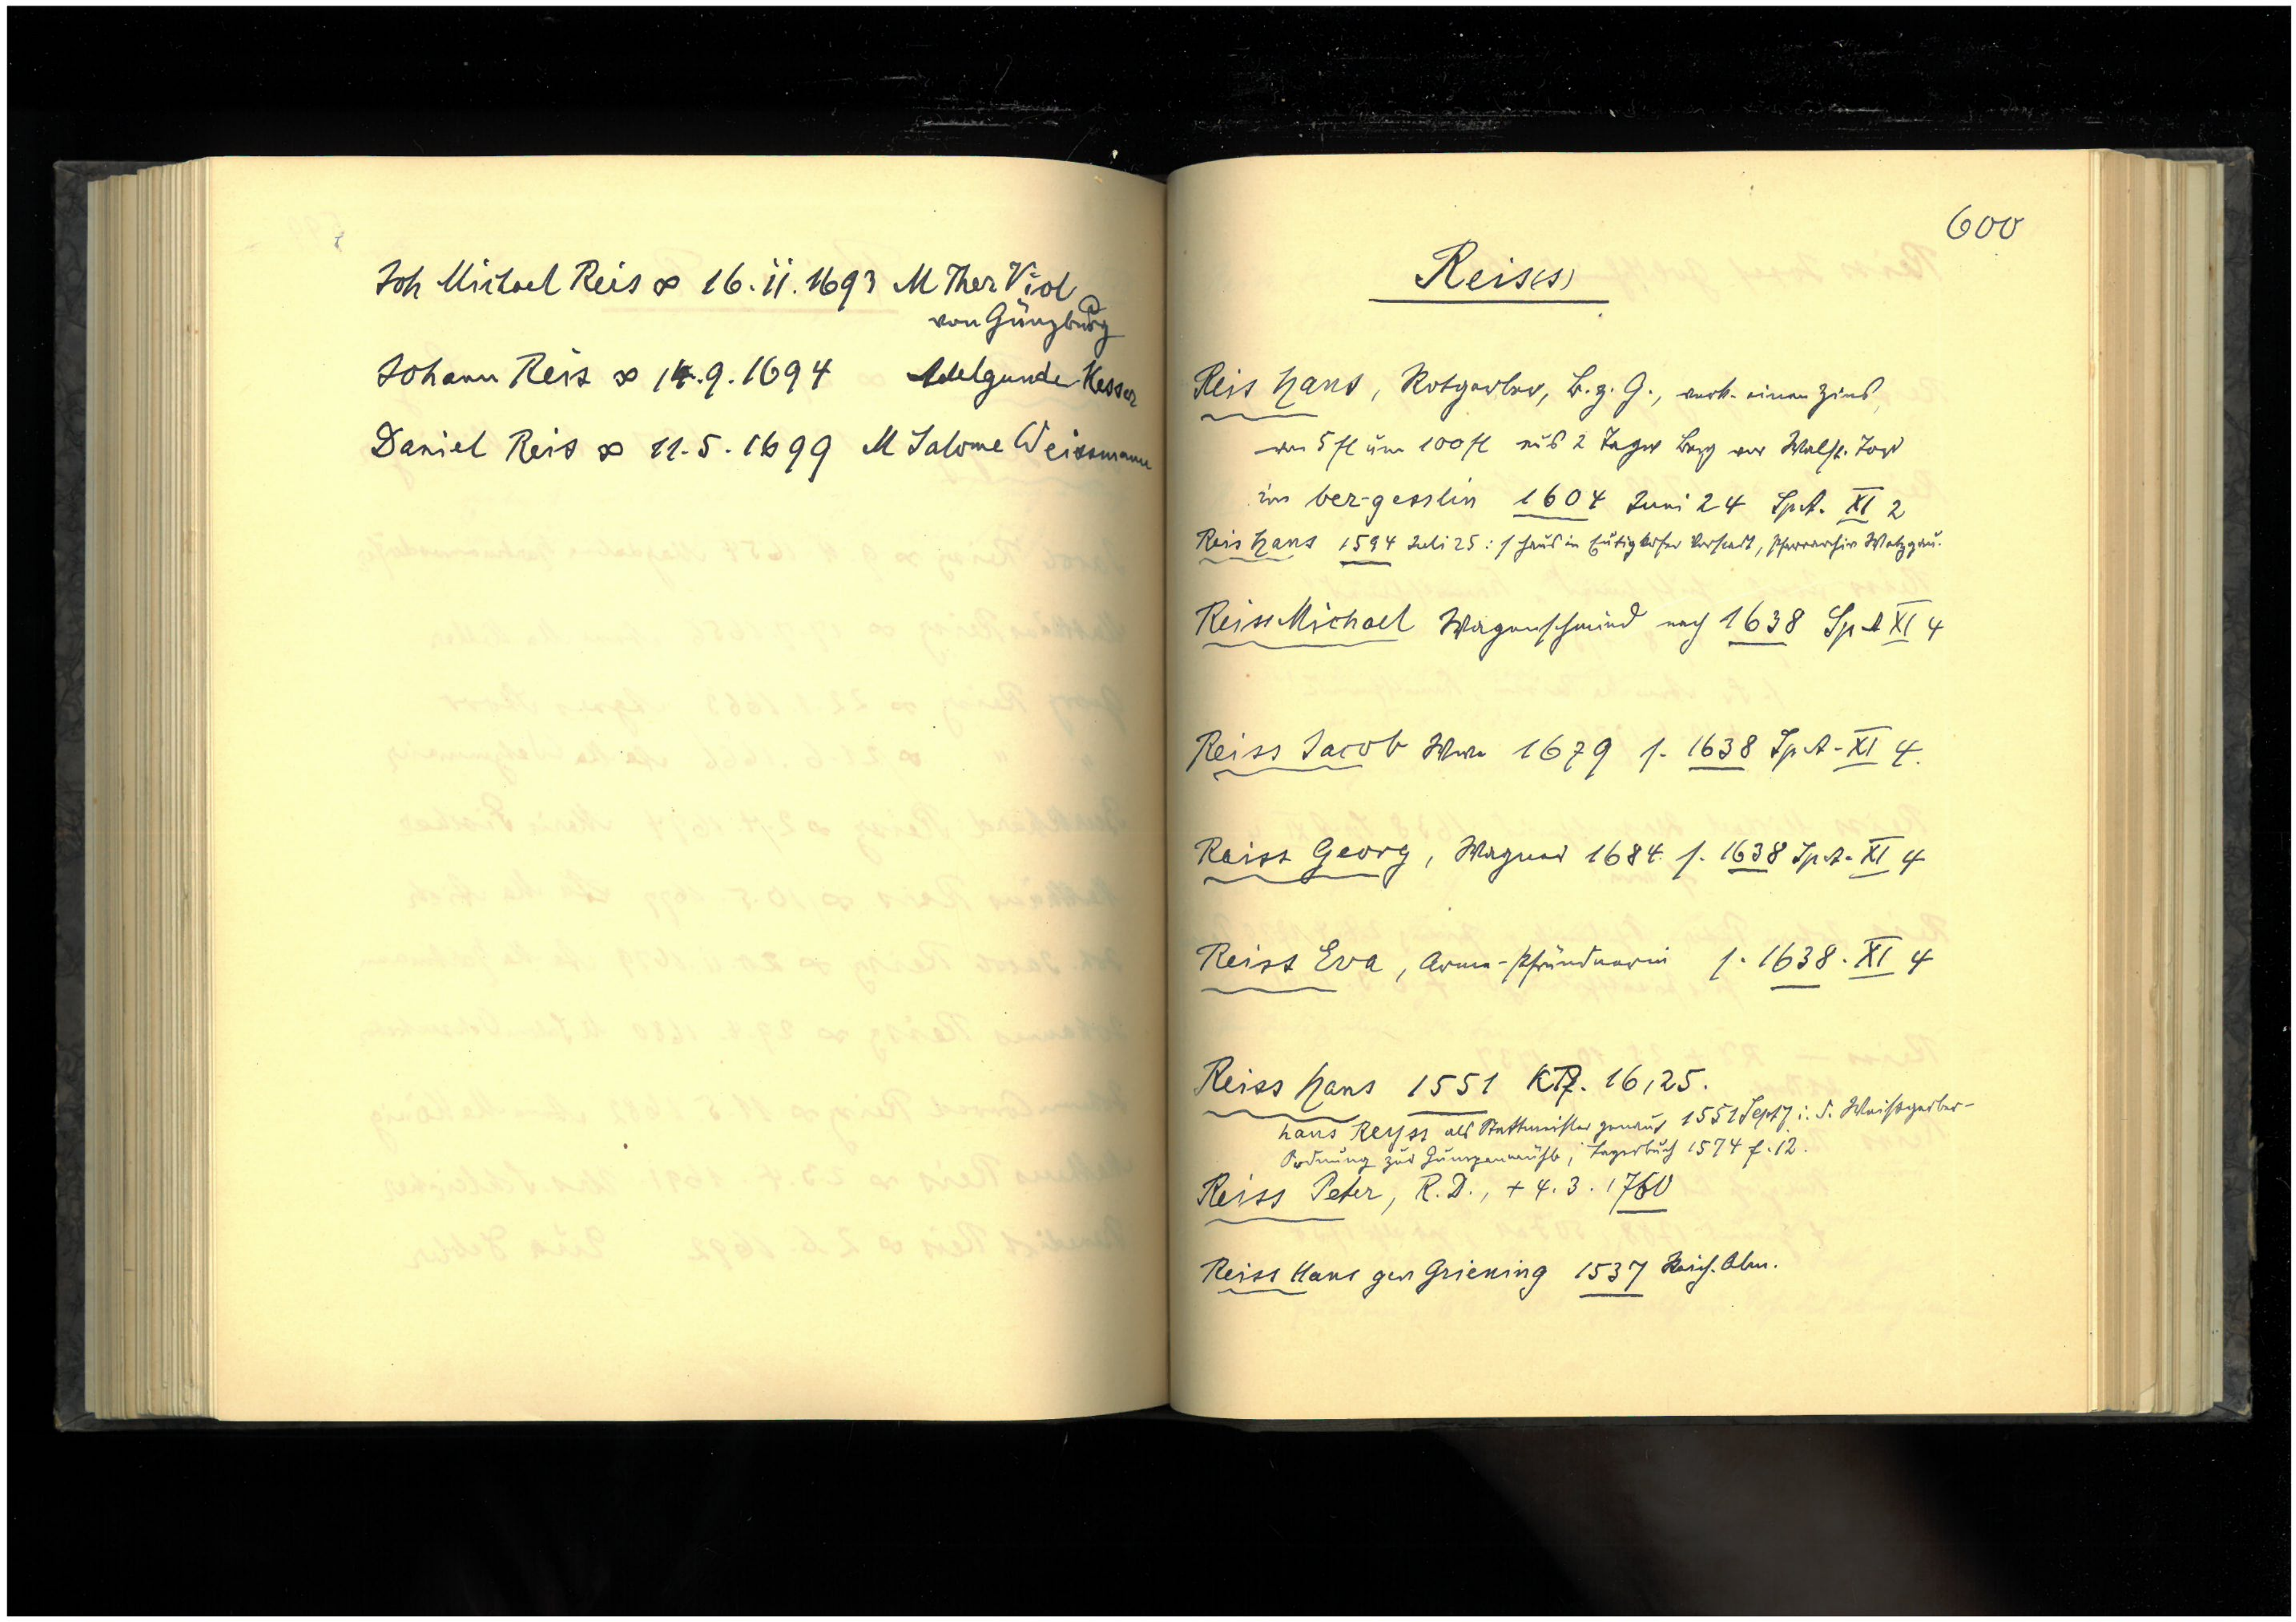 Joh Michael Reis ∞ 16.11.1693 M Ther Viol
von Günzburg
Johann Reis ∞ 14.9.1694 Adelgunde Kesser
Daniel Reis ∞ 11.5.1699 M Salome Weissmann
600
Reis(s)
Reis Hans, Rotgerber, B.z.G., verk. einen Zins
von 5 fl um 100 fl aus 2 Tagw Berg vor Walst. Tor
im ber-gesslin 1604 Juni 24 Sp.A. XI 2
Reis Hans 1594 Juli 25: 1 Haus in Eutighofer Vorstadt, Pfarrarchiv Wetzgau.
Reiss Michael Wagenschmied nach 1638 Sp A XI 4
Reiss Jacob Wwe 1679 f. 1638 Sp.A. XI 4.
Reiss Georg, Wagner 1684 f. 1638 Sp.A. XI 4
Reiss Eva, Arme-Pfründnerin f. 1638. XI 4
Reiss Hans 1551 16,25.
hans Reyss als Stattmeister genannt 1551 Sept 7 i. d. Weissgerber-
Ordnung zur Gumpenmühle, Lagerbuch 1574 f. 12.
Reiss Peter, R.D., + 4.3.1760
Reiss Hans gen Griening 1537 Reich. Alm.